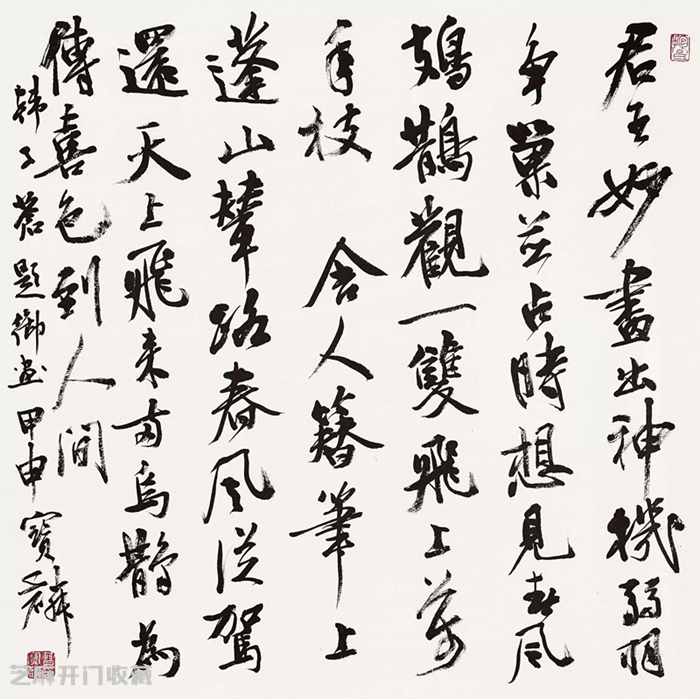 君王妙畫出神機弱羽
爭巢並占時想見春風
鳷鵲觀一雙飛上萬
年枝 舍人簪筆上
蓬山輦路春風從駕
還天上飛來兩烏鵲為
傳喜色到人間
韓子蒼題御畫甲申寶麟
芝麻开门收藏